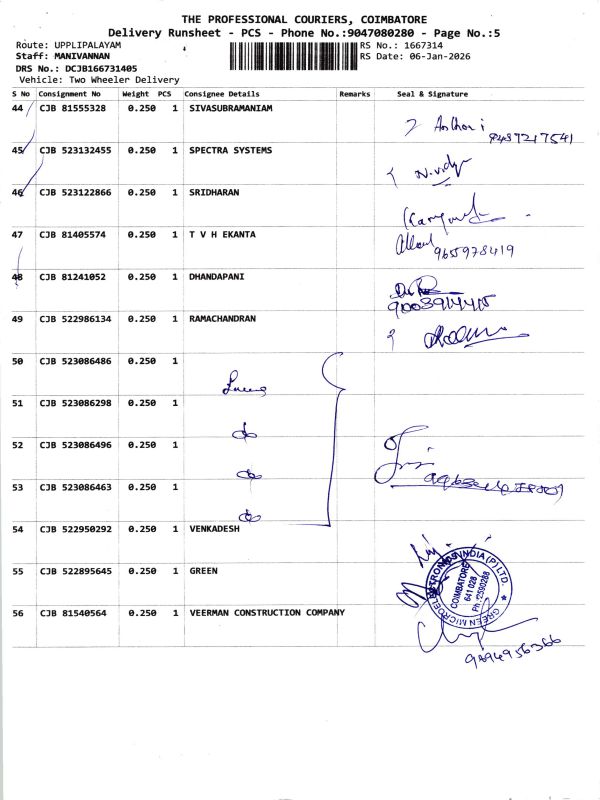 THE PROFESSIONAL COURIERS, COIMBATORE
Delivery Runsheet - PCS - Phone No.:9047080280 - Page No.:5
Route: UPPLIPALAYAM
RS No.: 1667314
Staff: MANIVANNAN
RS Date: 06-Jan-2026
DRS No.: DCJB166731405
Vehicle: Two Wheeler Delivery
S No Consignment No Weight PCS Consignee Details Remarks Seal & Signature
44 CJB 81555328 0.250 1 SIVASUBRAMANIAM
9487217541
45 CJB 523132455 0.250 1 SPECTRA SYSTEMS
46 CJB 523122866 0.250 1 SRIDHARAN
47 CJB 81405574 0.250 1 T V H EKANTA
9655978419
48 CJB 81241052 0.250 1 DHANDAPANI
49 CJB 522986134 0.250 1 RAMACHANDRAN
50 CJB 523086486 0.250 1
51 CJB 523086298 0.250 1
52 CJB 523086496 0.250 1
53 CJB 523086463 0.250 1
54 CJB 522950292 0.250 1 VENKADESH
55 CJB 522895645 0.250 1 GREEN
GREEN MICROELECTRONICS INDIA (P) LTD.
COIMBATORE
641 028
PH :2590288
56 CJB 81540564 0.250 1 VEERMAN CONSTRUCTION COMPANY
9894956366